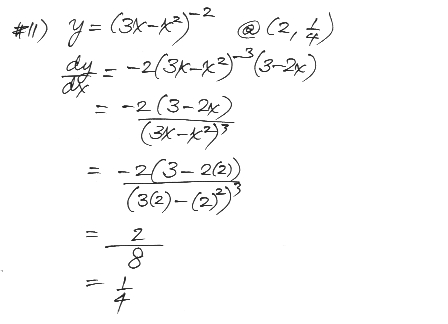 #11) y = (3x-x²)⁻² @ (2, 1/4)
dy/dx = -2(3x-x²)⁻³(3-2x)
= -2(3-2x)/(3x-x²)³
= -2(3-2(2))/(3(2)-(2)²)³
= 2/8
= 1/4